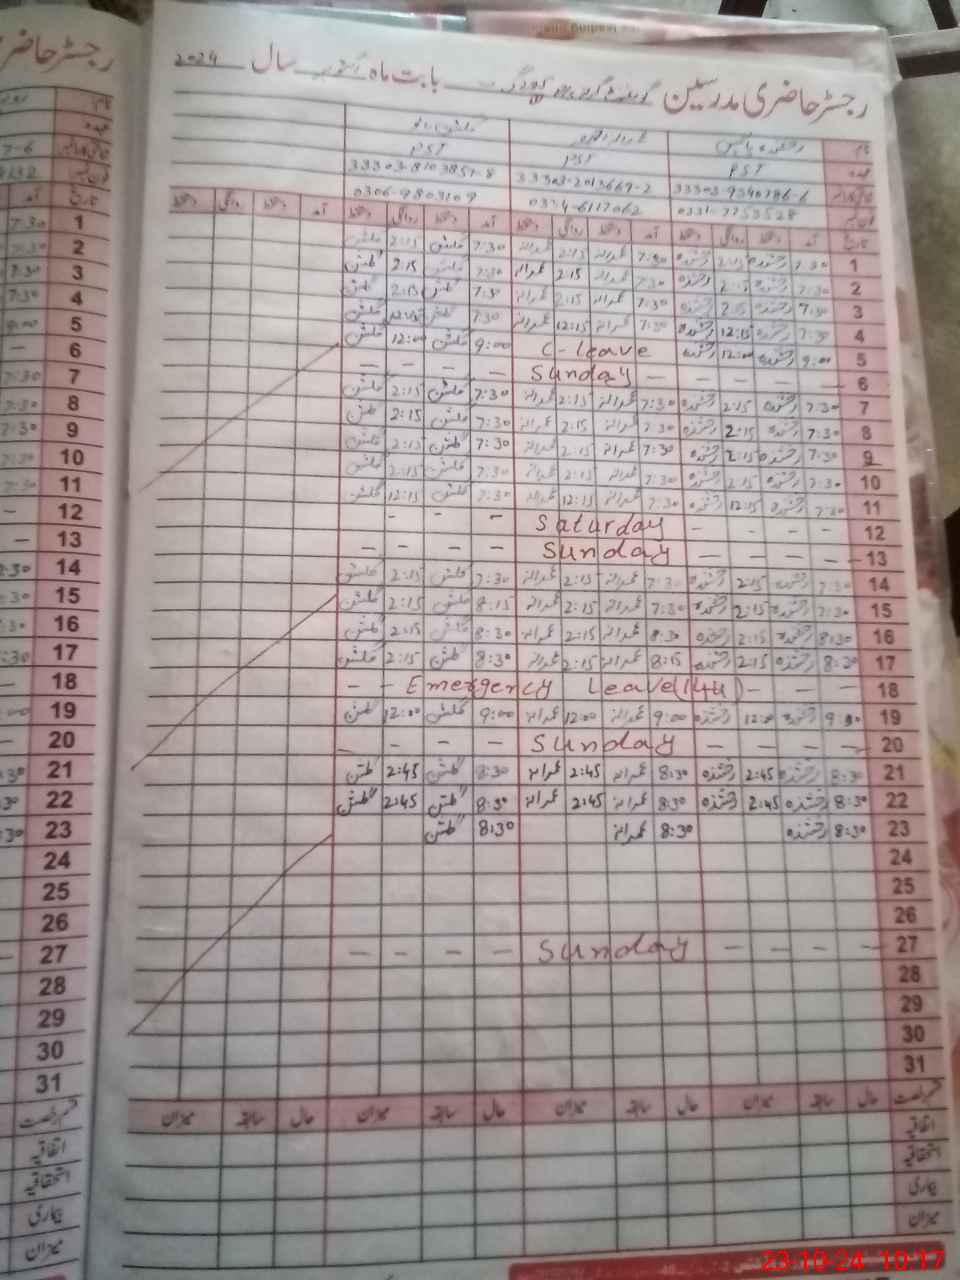 رجسٹر حاضری مدرسین گورنمنٹ بابت ماہ اکتوبر سال 2024
نام رخشندہ یاسمین
عہدہ PST PST PST
33303-9340786-6 33303-2013669-2 33303-8103857-8
0331-7753528 0334-6117062 0306-9803109
تاریخ آمد دستخط روانگی دستخط آمد دستخط روانگی دستخط آمد دستخط روانگی دستخط آمد دستخط روانگی دستخط
1 7:30 رخشندہ 2:15 رخشندہ 7:30 عمرانہ 2:15 عمرانہ 7:30 گلشن 2:15 گلشن
2 7:30 رخشندہ 2:15 رخشندہ 7:30 عمرانہ 2:15 عمرانہ 7:30 گلشن 2:15 گلشن
3 7:30 رخشندہ 2:15 رخشندہ 7:30 عمرانہ 2:15 عمرانہ 7:30 گلشن 2:15 گلشن
4 7:30 رخشندہ 12:15 رخشندہ 7:30 عمرانہ 12:15 عمرانہ 7:30 گلشن 12:15 گلشن
5 9:00 رخشندہ 12:00 رخشندہ C-leave 9:00 گلشن 12:00 گلشن
6 — — — — Sunday — — — —
7 7:30 رخشندہ 2:15 رخشندہ 7:30 عمرانہ 2:15 عمرانہ 7:30 گلشن 2:15 گلشن
8 7:30 رخشندہ 2:15 رخشندہ 7:30 عمرانہ 2:15 عمرانہ 7:30 گلشن 2:15 گلشن
9 7:30 رخشندہ 2:15 رخشندہ 7:30 عمرانہ 2:15 عمرانہ 7:30 گلشن 2:15 گلشن
10 7:30 رخشندہ 2:15 رخشندہ 7:30 عمرانہ 2:15 عمرانہ 7:30 گلشن 2:15 گلشن
11 7:30 رخشندہ 12:15 رخشندہ 7:30 عمرانہ 12:15 عمرانہ 7:30 گلشن 12:15 گلشن
12 - - - Saturday - - -
13 — — — — Sunday — — — —
14 7:30 رخشندہ 2:15 رخشندہ 7:30 عمرانہ 2:15 عمرانہ 7:30 گلشن 2:15 گلشن
15 7:30 رخشندہ 2:15 رخشندہ 7:30 عمرانہ 2:15 عمرانہ 8:15 گلشن 2:15 گلشن
16 8:30 رخشندہ 2:15 رخشندہ 8:30 عمرانہ 2:15 عمرانہ 8:30 گلشن 2:15 گلشن
17 8:30 رخشندہ 2:15 رخشندہ 8:15 عمرانہ 2:15 عمرانہ 8:30 گلشن 2:15 گلشن
18 — — Emergency Leave(144) — — —
19 9:00 رخشندہ 12:00 رخشندہ 9:00 عمرانہ 12:00 عمرانہ 9:00 گلشن 12:00 گلشن
20 — — — — Sunday — — — —
21 8:30 رخشندہ 2:45 رخشندہ 8:30 عمرانہ 2:45 عمرانہ 8:30 گلشن 2:45 گلشن
22 8:30 رخشندہ 2:45 رخشندہ 8:30 عمرانہ 2:45 عمرانہ 8:30 گلشن 2:45 گلشن
23 8:30 رخشندہ 8:30 عمرانہ 8:30 گلشن
24
25
26
27 — — — — Sunday — — — —
28
29
30
31
قسم رخصت حال سابقہ میزان حال سابقہ میزان حال سابقہ میزان حال سابقہ میزان
اتفاقیہ
استحقاقیہ
بیماری
میزان
رجسٹر حاضری
1 7:30
2 7:30
3 7:30
4 7:30
5 9:00
6 —
7 7:30
8 7:30
9 7:30
10 7:30
11 7:30
12 —
13 —
14 8:30
15
16
17
18 —
19
20 —
21
22
23
24
25
26
27 —
28
29
30
31
قسم رخصت
اتفاقیہ
استحقاقیہ
بیماری
میزان
23-10-24 10:17